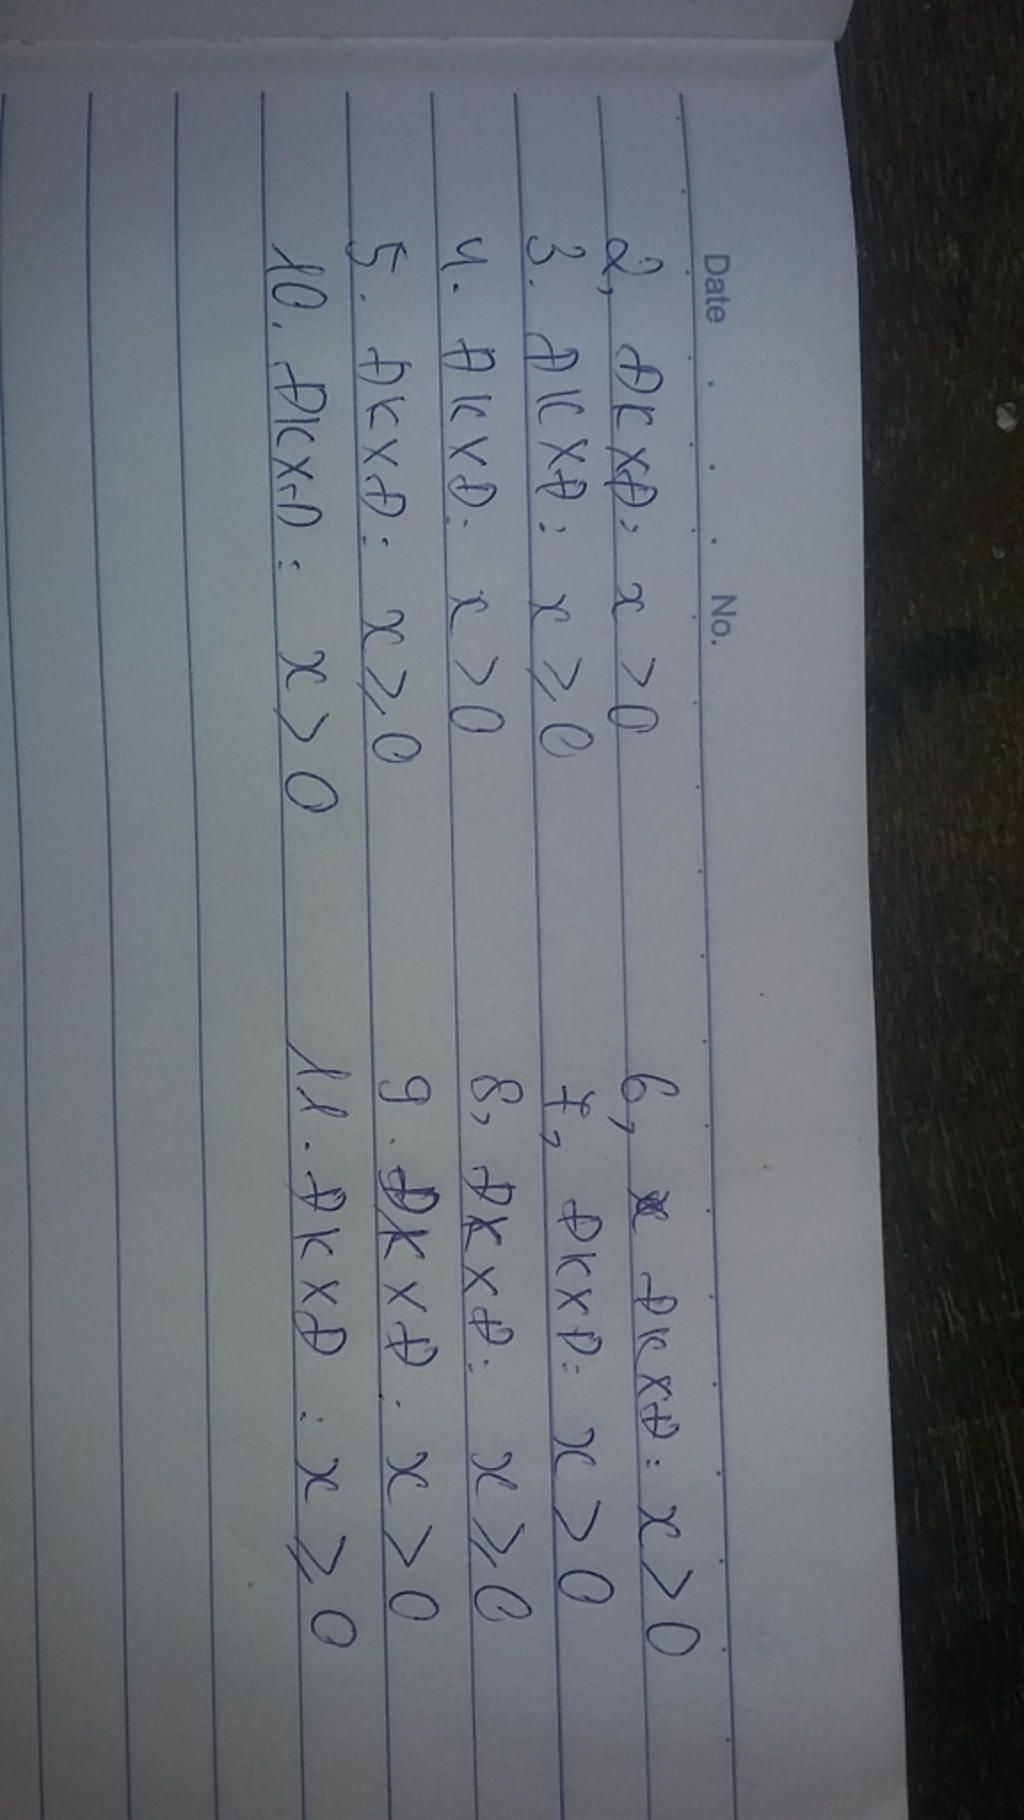 Date No.
2, ĐKXĐ: x > 0
3. ĐKXĐ: x ≥ 0
4. ĐKXĐ: x > 0
5. ĐKXĐ: x ≥ 0
10. ĐKXĐ: x > 0
6, ĐKXĐ: x > 0
7, ĐKXĐ: x > 0
8, ĐKXĐ: x ≥ 0
9. ĐKXĐ: x > 0
11. ĐKXĐ: x ≥ 0